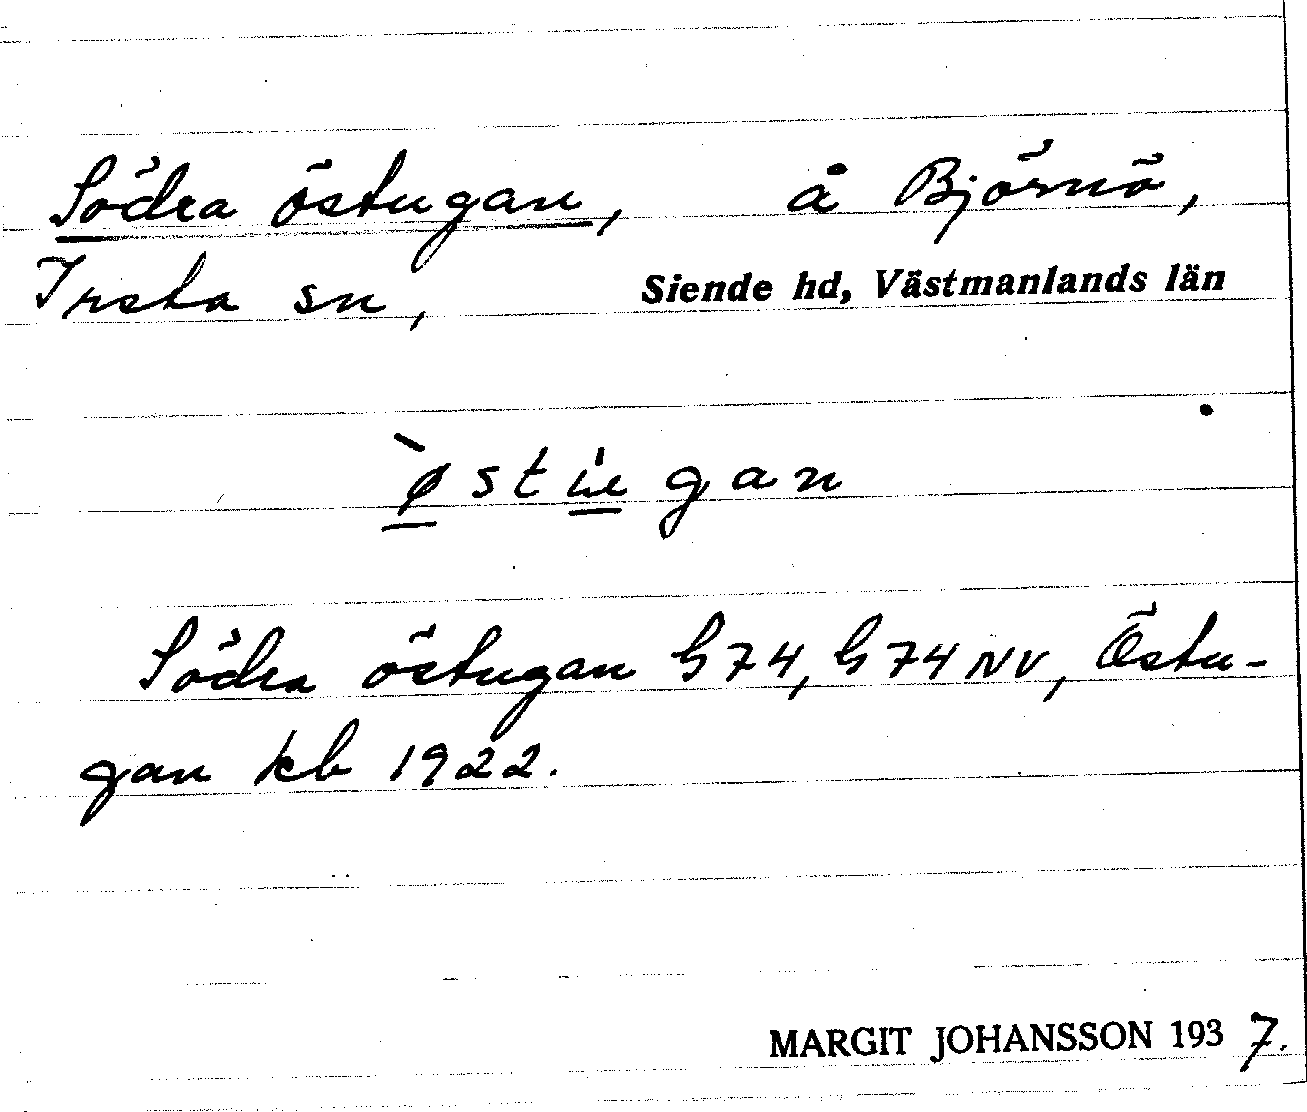 Södra östugan, å Björnö,
Irsta sn, Siende hd, Västmanlands län
`østu̍gan
Södra östugan G74, G74 NV, Östu-
gan kb 1922.
MARGIT JOHANSSON 1937.